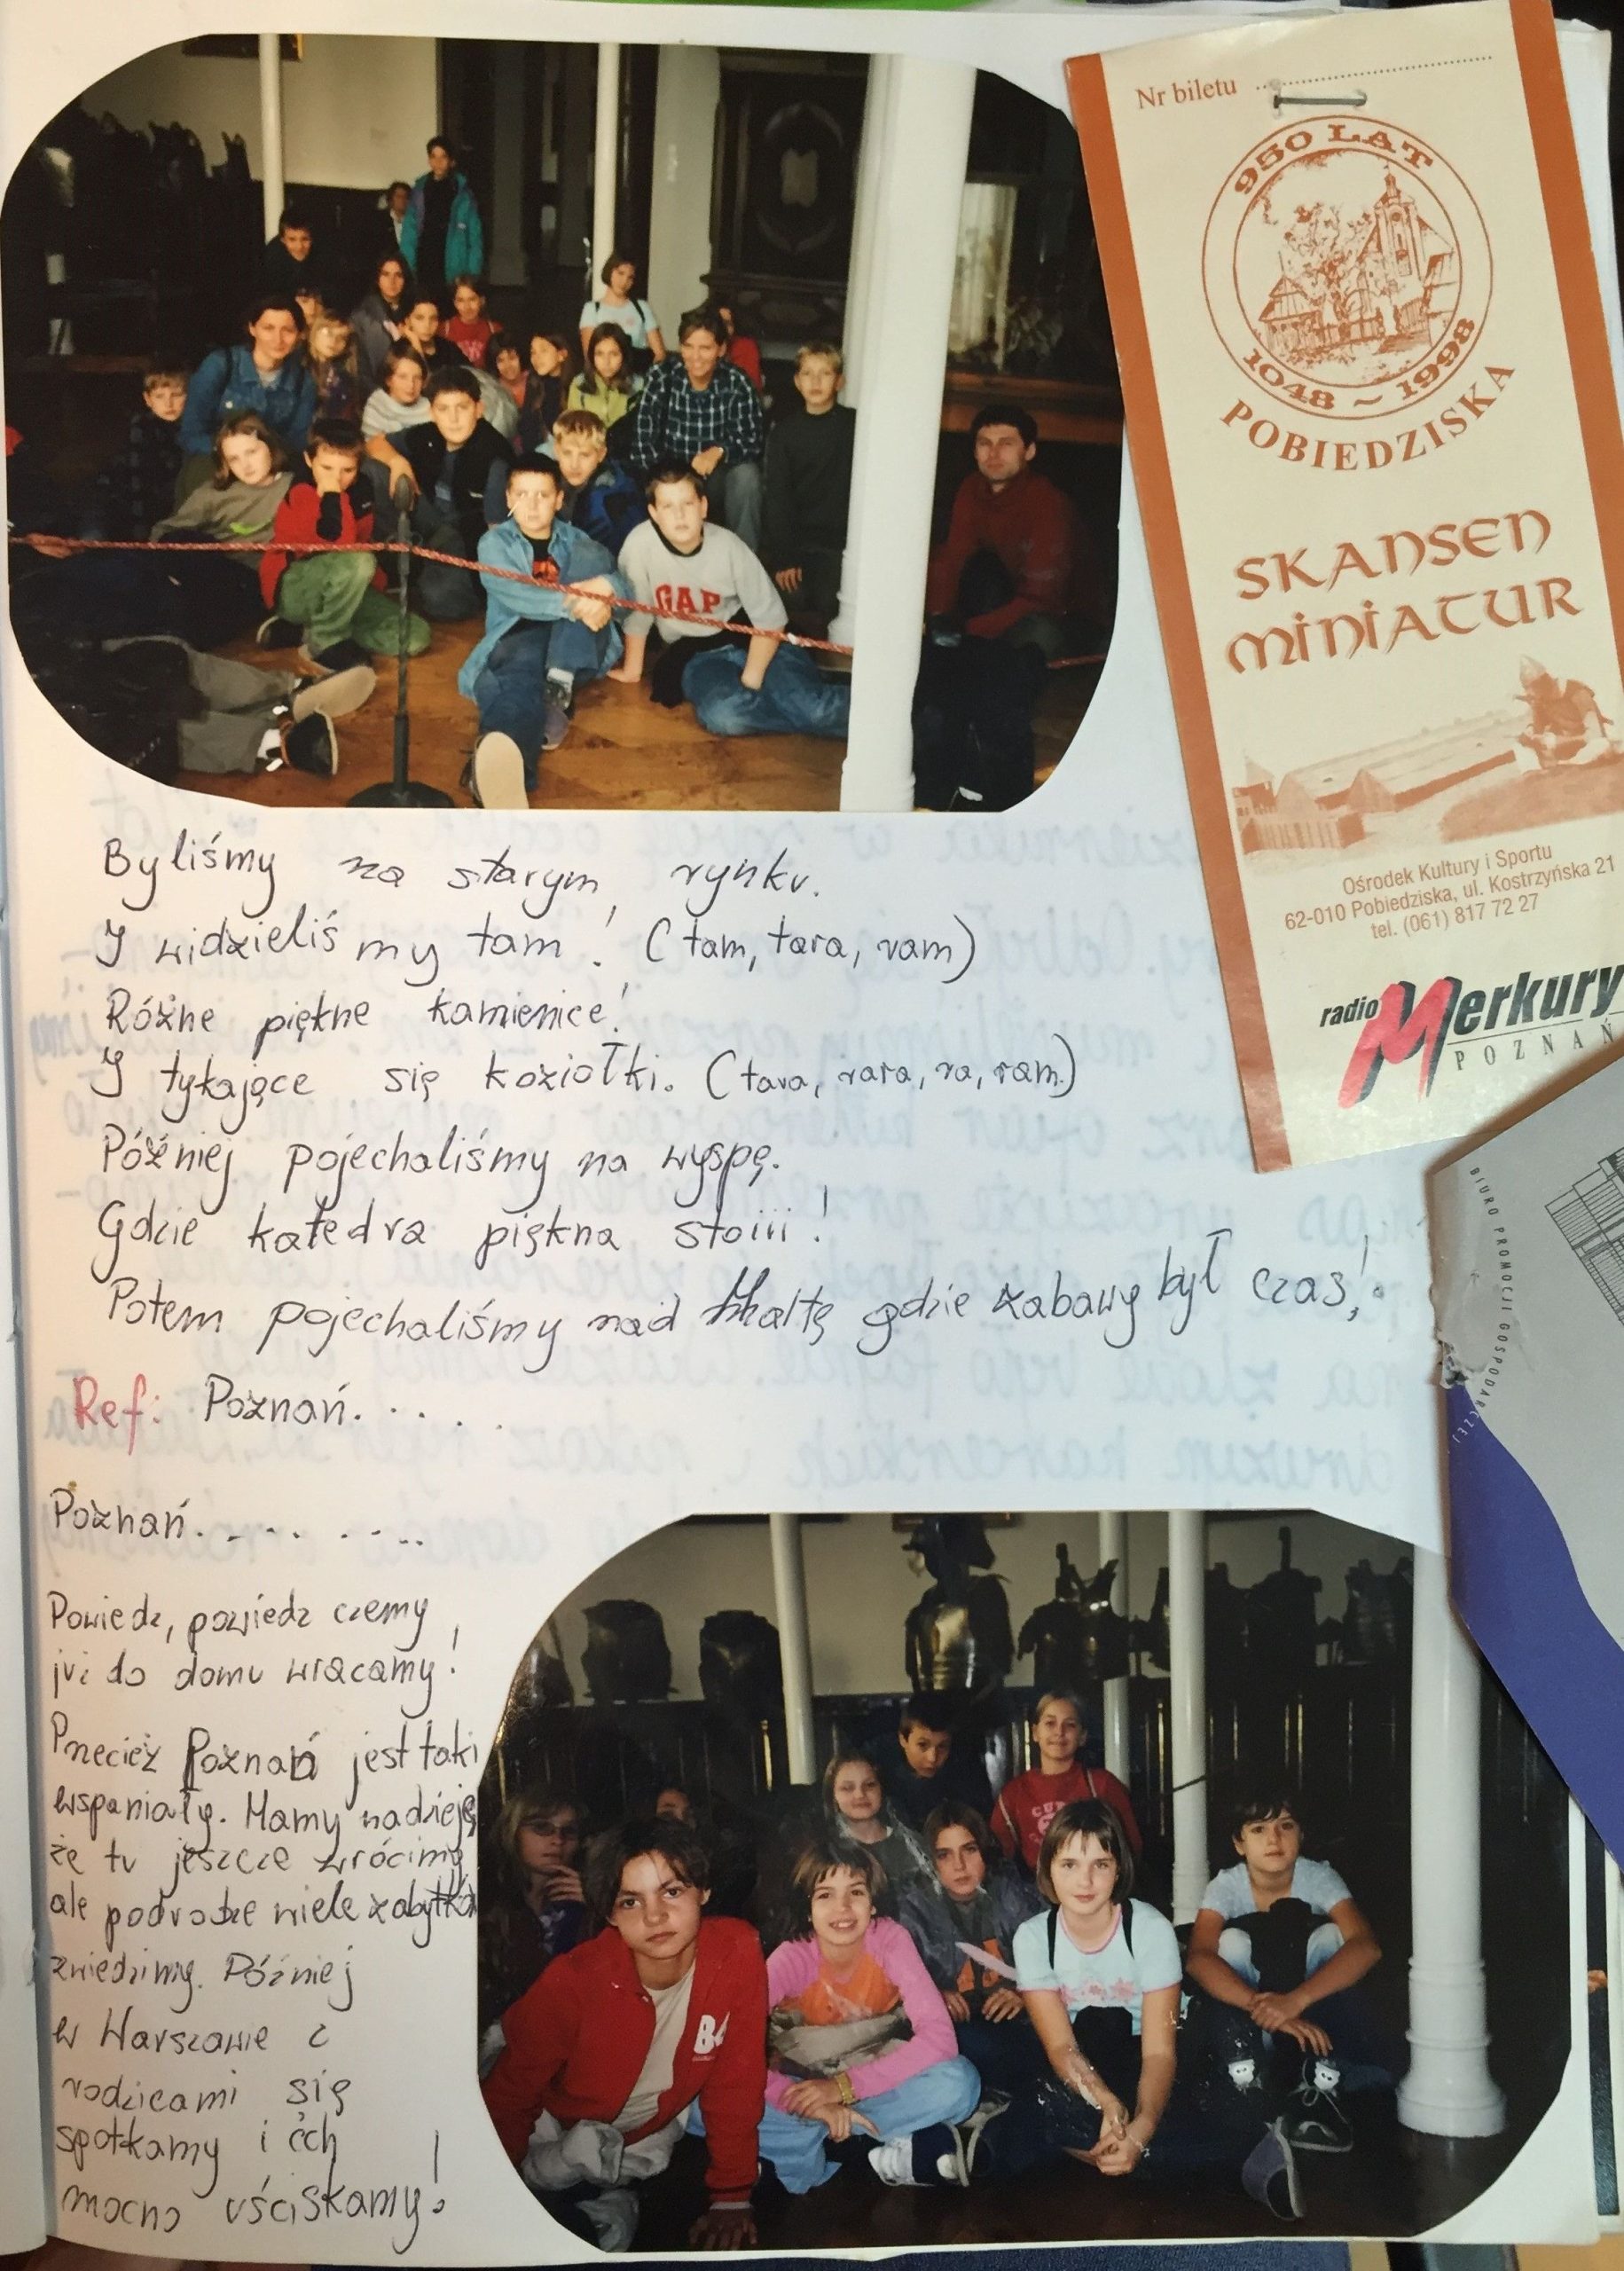 Nr biletu
950 LAT
1048 ~ 1998
POBIEDZISKA
SKANSEN
MINIATUR
Ośrodek Kultury i Sportu
62-010 Pobiedziska, ul. Kostrzyńska 21
tel. (061) 817 72 27
radio Merkury
POZNAŃ
BIURO PROMOCJI GOSPODARCZEJ
GAP
Byliśmy na starym rynku.
I widzieliśmy tam! (tam, tara, ram)
Różne piękne kamienice!
I tykające się koziołki. (tara, rara, ra, ram.)
Później pojechaliśmy na wyspę.
Gdzie katedra piękna stoiii!
Potem pojechaliśmy nad Maltę gdzie zabawy był czas!
Ref: Poznań.....
Poznań.........
Powiedz, powiedz czemy
już do domu wracamy!
Przecież Poznań jest taki
wspaniały. Mamy nadzieję
że tu jeszcze wrócimy
ale podrodze wiele
zwiedzimy. Później
w Warszawie z
rodzicami się
spotkamy i ich
mocno uściskamy!